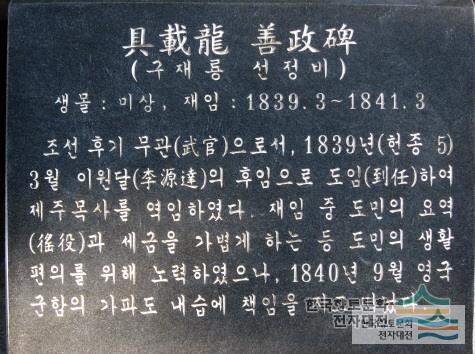 具載龍 善政碑
(구재룡 선정비)
생몰 : 미상, 재임 : 1839.3~1841.3
조선 후기 무관(武官)으로서, 1839년(헌종 5)
3월 이원달(李源達)의 후임으로 도임(到任)하여
제주목사를 역임하였다. 재임 중 도민의 요역
(徭役)과 세금을 가볍게 하는 등 도민의 생활
편의를 위해 노력하였으나, 1840년 9월 영국
군함의 가파도 내습에 책임을
한국향토문화
전자대전
한국향토문화
전자대전